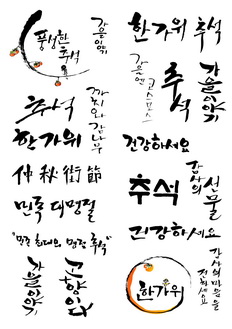 풍성한
추석
가을이야기
한가위 추석
가을엔
코스모스
추석
가을이야기
추석
까치와 감나무
한가위
건강하세요
仲秋街節
추석
감사의
선물
민족 대명절
건강하세요
"명절 최대의 명절 추석"
가을이야기
고향이다
한가위
감사의 마음을
전하세요